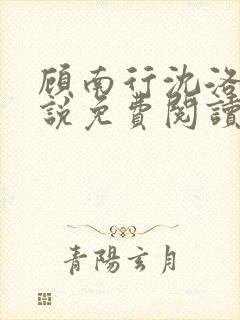 顾南行沈洛
說免費閱讀
青陽玄月